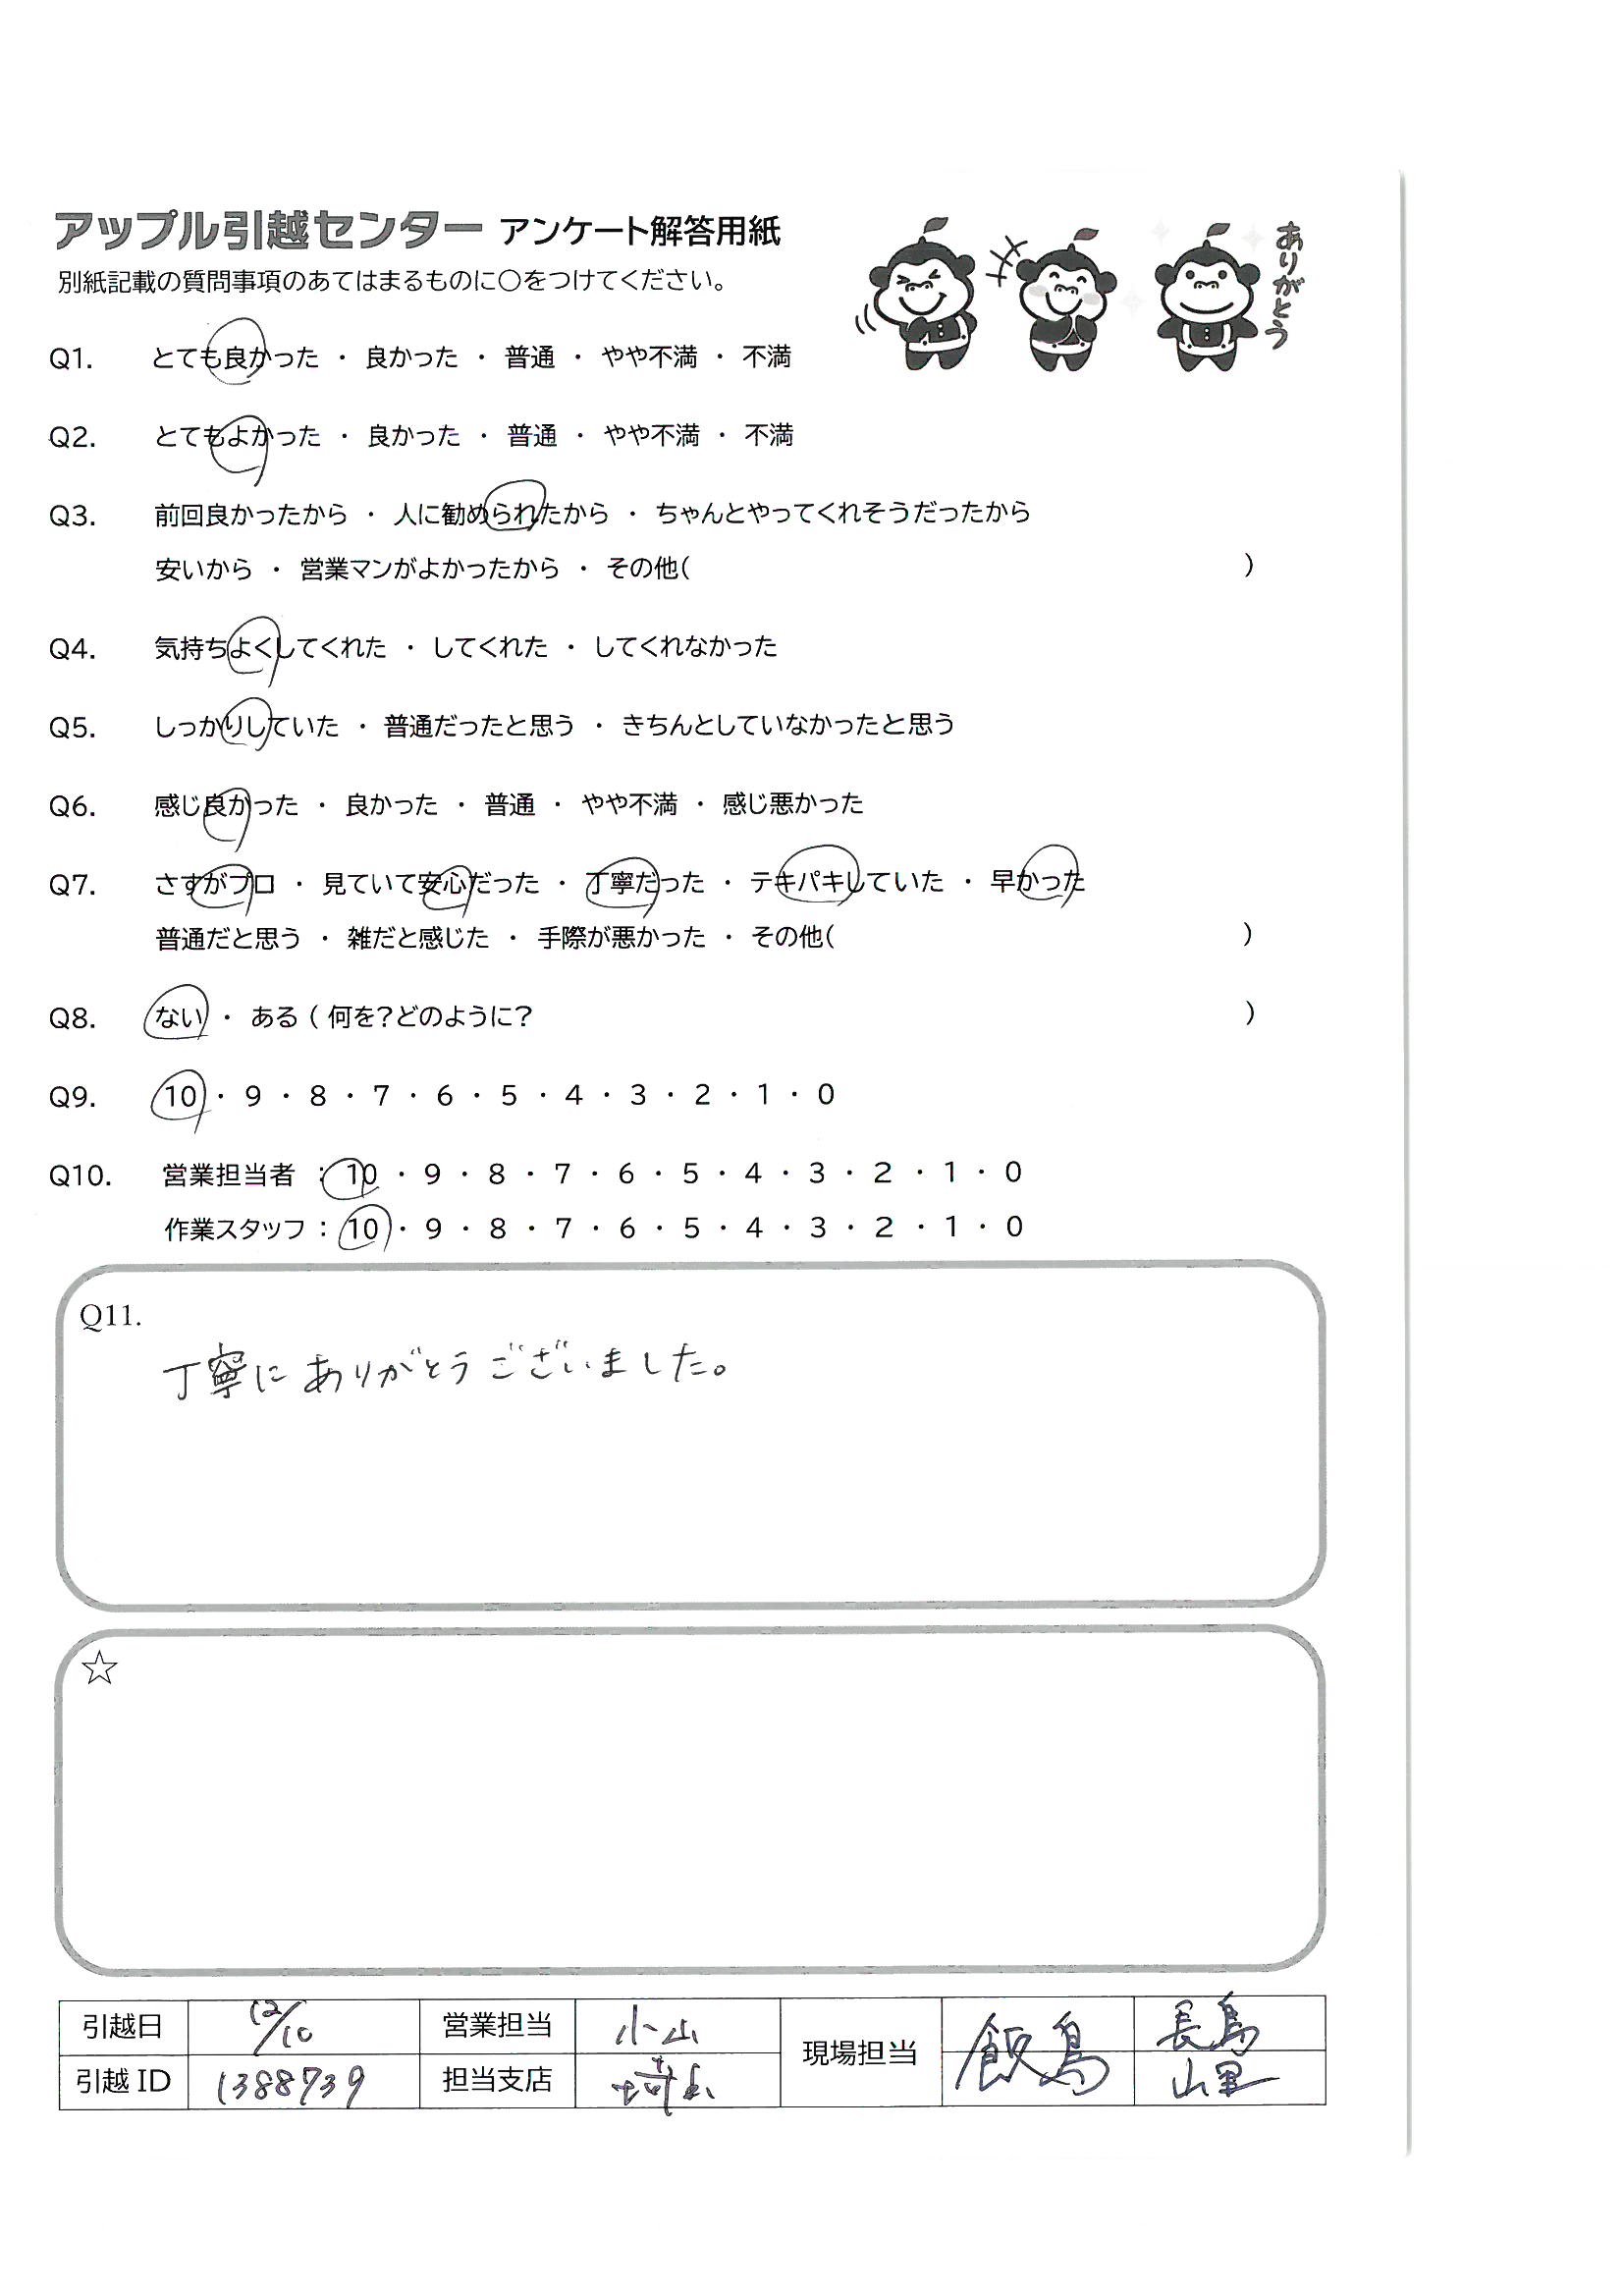 アップル引越センター アンケート解答用紙
ありがとう
別紙記載の質問事項のあてはまるものに○をつけてください。
Q1. とても良かった ・ 良かった ・ 普通 ・ やや不満 ・ 不満
Q2. とてもよかった ・ 良かった ・ 普通 ・ やや不満 ・ 不満
Q3. 前回良かったから ・ 人に勧められたから ・ ちゃんとやってくれそうだったから
安いから ・ 営業マンがよかったから ・ その他( )
Q4. 気持ちよくしてくれた ・ してくれた ・ してくれなかった
Q5. しっかりしていた ・ 普通だったと思う ・ きちんとしていなかったと思う
Q6. 感じ良かった ・ 良かった ・ 普通 ・ やや不満 ・ 感じ悪かった
Q7. さすがプロ ・ 見ていて安心だった ・ 丁寧だった ・ テキパキしていた ・ 早かった
普通だと思う ・ 雑だと感じた ・ 手際が悪かった ・ その他( )
Q8. ない ・ ある ( 何を?どのように? )
Q9. 10 ・ 9 ・ 8 ・ 7 ・ 6 ・ 5 ・ 4 ・ 3 ・ 2 ・ 1 ・ 0
Q10. 営業担当者 : 10 ・ 9 ・ 8 ・ 7 ・ 6 ・ 5 ・ 4 ・ 3 ・ 2 ・ 1 ・ 0
作業スタッフ : 10 ・ 9 ・ 8 ・ 7 ・ 6 ・ 5 ・ 4 ・ 3 ・ 2 ・ 1 ・ 0
Q11.
丁寧にありがとうございました。
☆
引越日 12/10 営業担当 小山 現場担当 飯島 長島
引越 ID 1388739 担当支店 山里